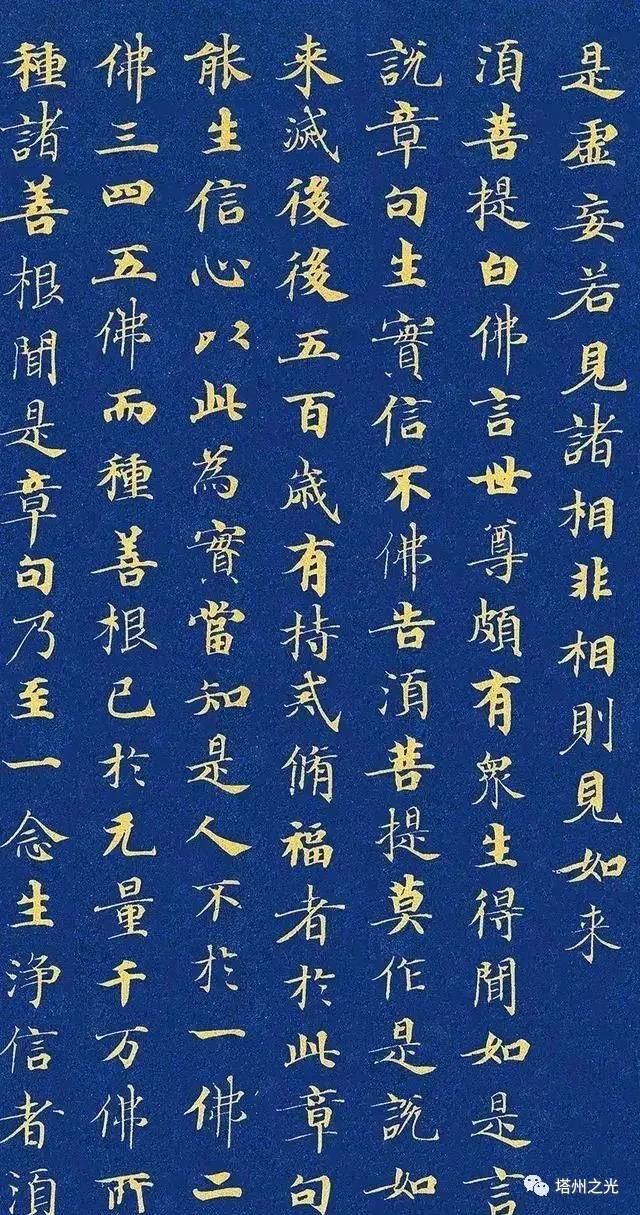 是虛妄若見諸相非相則見如来
湏菩提白佛言世尊頗有衆生得聞如是言
説章句生實信不佛告湏菩提莫作是説如
来滅後後五百歲有持戒脩福者於此章句
能生信心以此為實當知是人不於一佛二
佛三四五佛而種善根已於无量千万佛所
種諸善根聞是章句乃至一念生浄信者湏
塔州之光